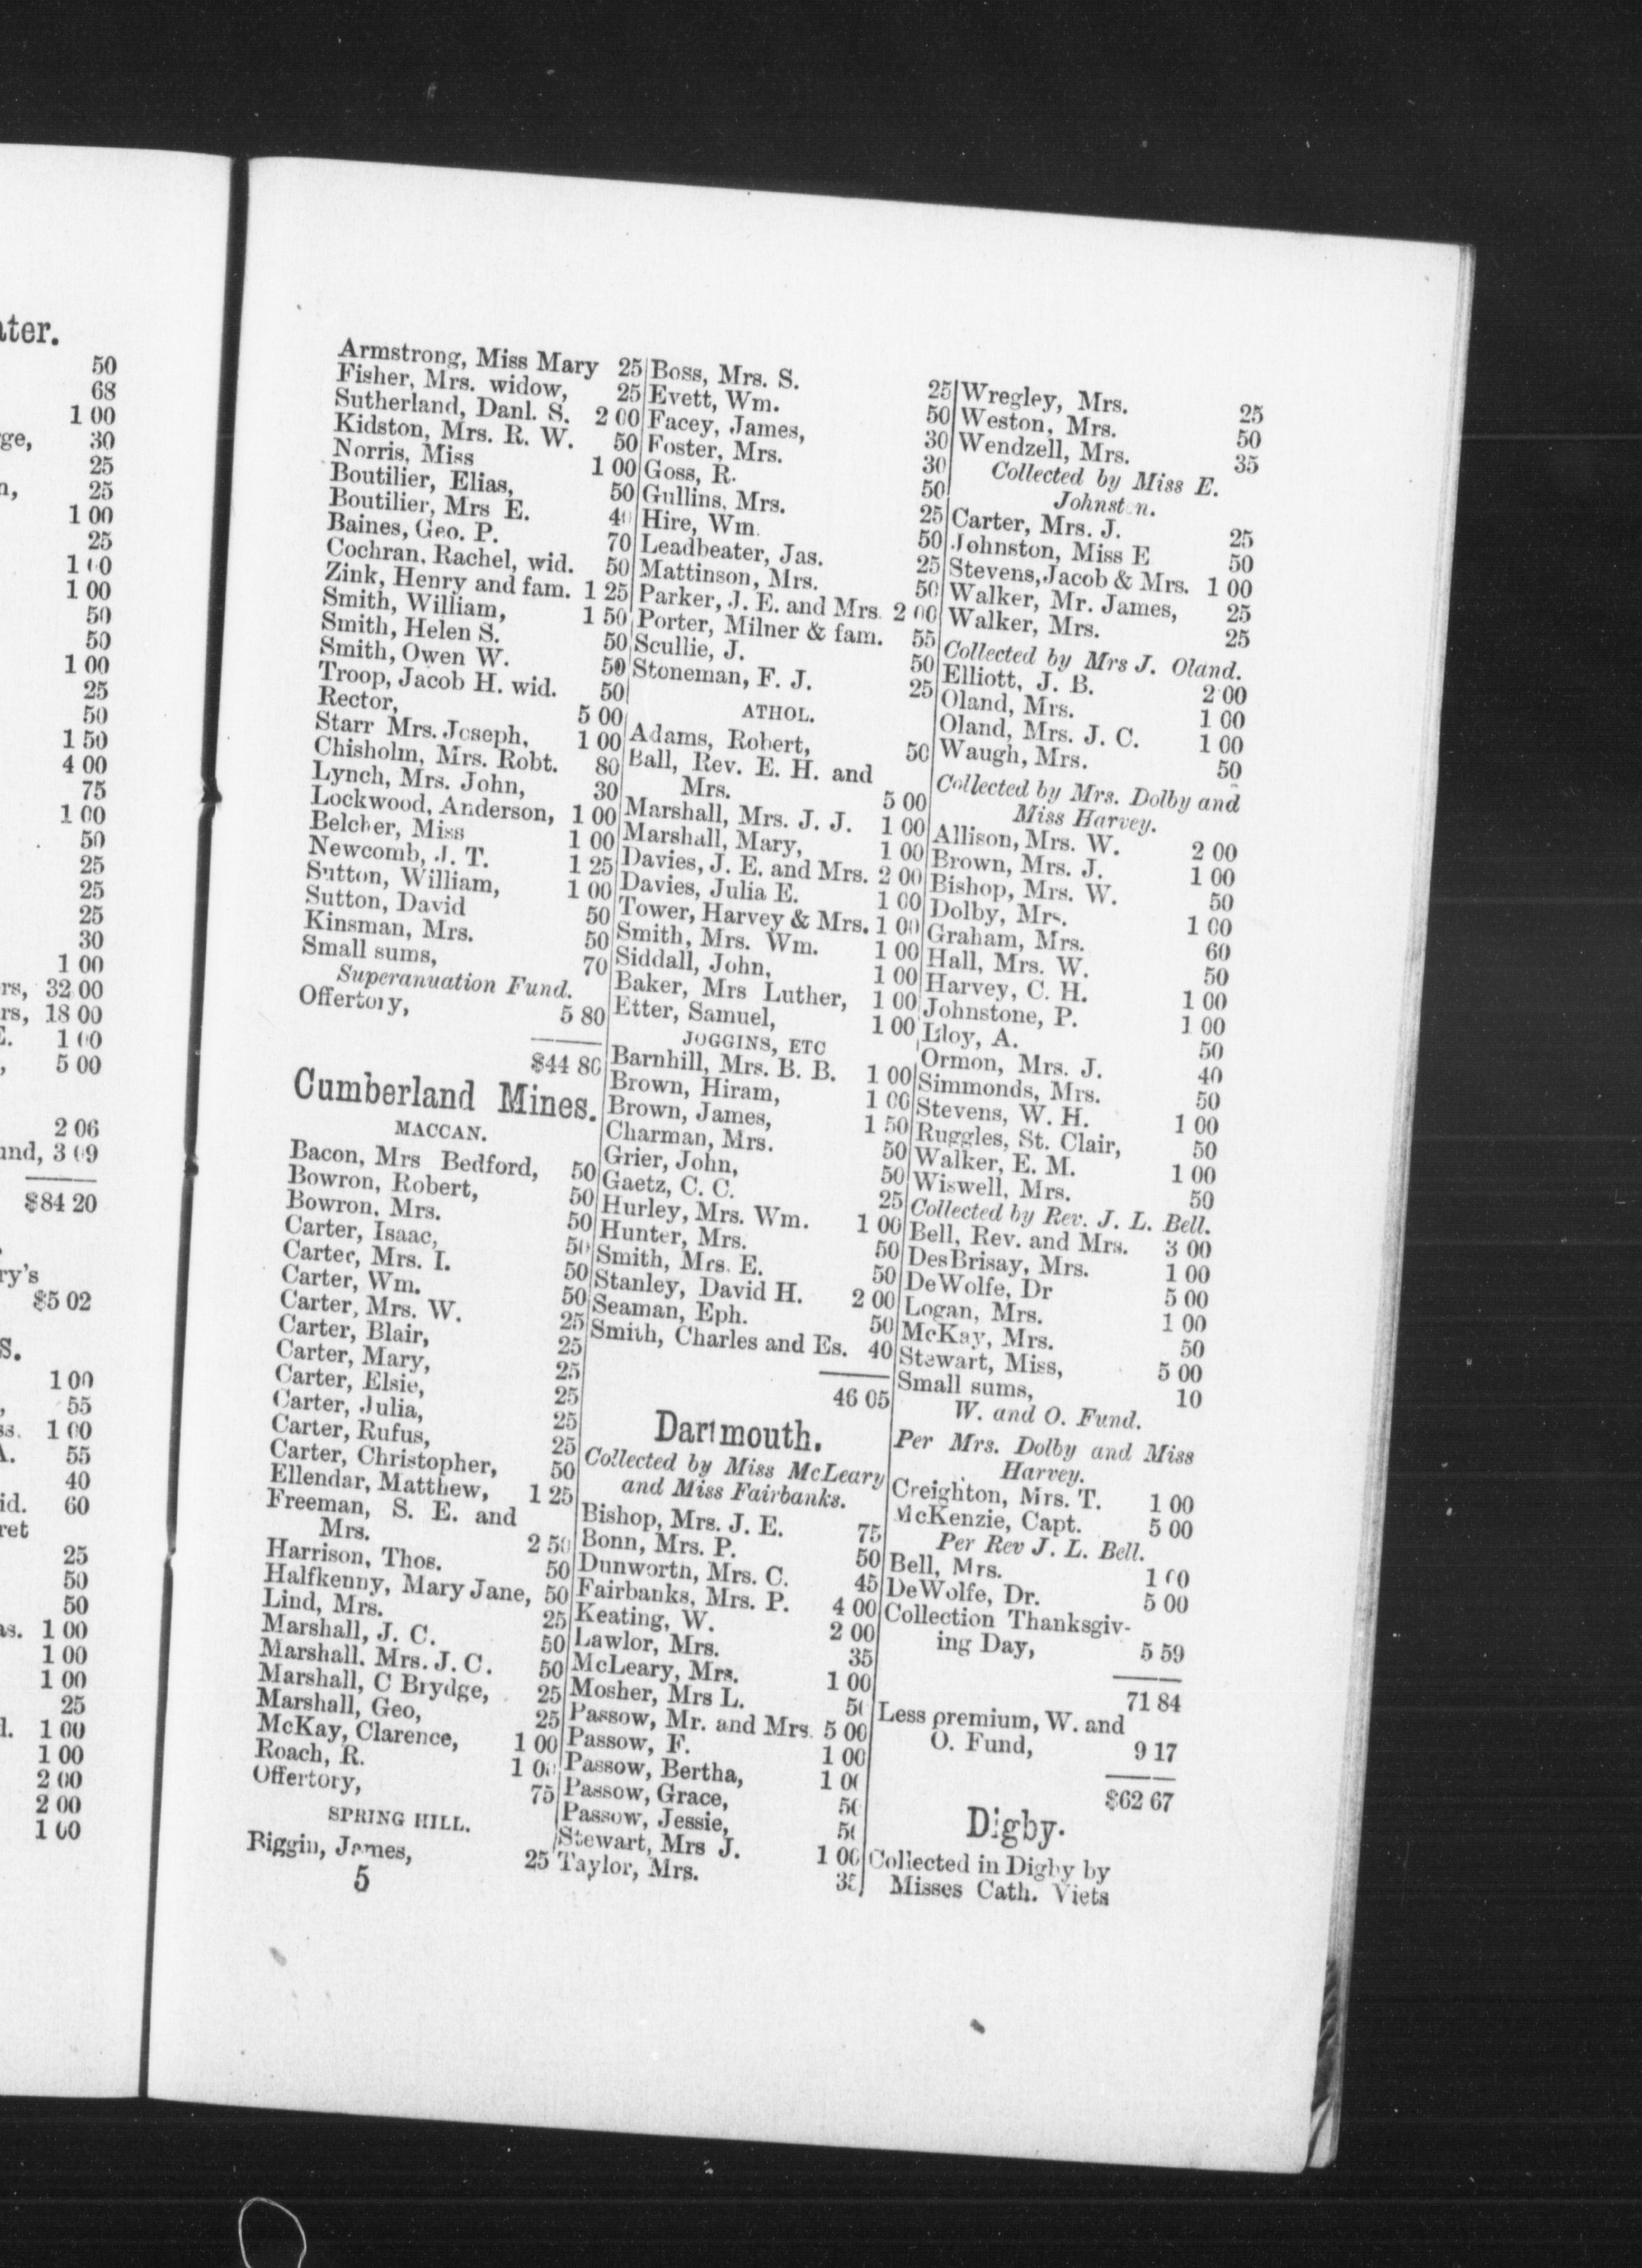 ater.
50
68
1 00
ge, 30
25
n, 25
1 00
25
1 00
1 00
50
50
1 00
25
50
1 50
4 00
75
1 00
50
25
25
25
30
1 00
rs, 32 00
rs, 18 00
E. 1 00
, 5 00
2 06
und, 3 09
$84 20
ry's
$5 02
s.
1 00
, 55
ss. 1 00
A. 55
40
id. 60
ret
25
50
50
as. 1 00
1 00
1 00
25
l. 1 00
1 00
2 00
2 00
1 00
Armstrong, Miss Mary 25
Fisher, Mrs. widow, 25
Sutherland, Danl. S. 2 00
Kidston, Mrs. R. W. 50
Norris, Miss 1 00
Boutilier, Elias, 50
Boutilier, Mrs E. 40
Baines, Geo. P. 70
Cochran, Rachel, wid. 50
Zink, Henry and fam. 1 25
Smith, William, 1 50
Smith, Helen S. 50
Smith, Owen W. 50
Troop, Jacob H. wid. 50
Rector, 5 00
Starr Mrs. Joseph, 1 00
Chisholm, Mrs. Robt. 80
Lynch, Mrs. John, 30
Lockwood, Anderson, 1 00
Belcher, Miss 1 00
Newcomb, J. T. 1 25
Sutton, William, 1 00
Sutton, David 50
Kinsman, Mrs. 50
Small sums, 70
Superanuation Fund.
Offertory, 5 80
$44 80
Cumberland Mines.
MACCAN.
Bacon, Mrs Bedford, 50
Bowron, Robert, 50
Bowron, Mrs. 50
Carter, Isaac, 50
Carter, Mrs. I. 50
Carter, Wm. 50
Carter, Mrs. W. 25
Carter, Blair, 25
Carter, Mary, 25
Carter, Elsie, 25
Carter, Julia, 25
Carter, Rufus, 25
Carter, Christopher, 50
Ellendar, Matthew, 1 25
Freeman, S. E. and
Mrs. 2 50
Harrison, Thos. 50
Halfkenny, Mary Jane, 50
Lind, Mrs. 25
Marshall, J. C. 50
Marshall, Mrs. J. C. 50
Marshall, C Brydge, 25
Marshall, Geo, 25
McKay, Clarence, 1 00
Roach, R. 1 00
Offertory, 75
SPRING HILL.
Biggin, James, 25
5
Boss, Mrs. S. 25
Evett, Wm. 50
Facey, James, 30
Foster, Mrs. 30
Goss, R. 50
Gullins, Mrs. 25
Hire, Wm. 50
Leadbeater, Jas. 25
Mattinson, Mrs. 50
Parker, J. E. and Mrs. 2 00
Porter, Milner & fam. 55
Scullie, J. 50
Stoneman, F. J. 25
ATHOL.
Adams, Robert, 50
Ball, Rev. E. H. and
Mrs. 5 00
Marshall, Mrs. J. J. 1 00
Marshall, Mary, 1 00
Davies, J. E. and Mrs. 2 00
Davies, Julia E. 1 00
Tower, Harvey & Mrs. 1 00
Smith, Mrs. Wm. 1 00
Siddall, John, 1 00
Baker, Mrs Luther, 1 00
Etter, Samuel, 1 00
JOGGINS, ETC
Barnhill, Mrs. B. B. 1 00
Brown, Hiram, 1 00
Brown, James, 1 50
Charman, Mrs. 50
Grier, John, 50
Gaetz, C. C. 25
Hurley, Mrs. Wm. 1 00
Hunter, Mrs. 50
Smith, Mrs. E. 50
Stanley, David H. 2 00
Seaman, Eph. 50
Smith, Charles and Es. 40
46 05
Dartmouth.
Collected by Miss McLeary
and Miss Fairbanks.
Bishop, Mrs. J. E. 75
Bonn, Mrs. P. 50
Dunworth, Mrs. C. 45
Fairbanks, Mrs. P. 4 00
Keating, W. 2 00
Lawlor, Mrs. 35
McLeary, Mrs. 1 00
Mosher, Mrs L. 50
Passow, Mr. and Mrs. 5 00
Passow, F. 1 00
Passow, Bertha, 1 00
Passow, Grace, 50
Passow, Jessie, 50
Stewart, Mrs J. 1 00
Taylor, Mrs. 35
Wregley, Mrs. 25
Weston, Mrs. 50
Wendzell, Mrs. 35
Collected by Miss E.
Johnston.
Carter, Mrs. J. 25
Johnston, Miss E 50
Stevens, Jacob & Mrs. 1 00
Walker, Mr. James, 25
Walker, Mrs. 25
Collected by Mrs J. Oland.
Elliott, J. B. 2 00
Oland, Mrs. 1 00
Oland, Mrs. J. C. 1 00
Waugh, Mrs. 50
Collected by Mrs. Dolby and
Miss Harvey.
Allison, Mrs. W. 2 00
Brown, Mrs. J. 1 00
Bishop, Mrs. W. 50
Dolby, Mrs. 1 00
Graham, Mrs. 60
Hall, Mrs. W. 50
Harvey, C. H. 1 00
Johnstone, P. 1 00
Lloy, A. 50
Ormon, Mrs. J. 40
Simmonds, Mrs. 50
Stevens, W. H. 1 00
Ruggles, St. Clair, 50
Walker, E. M. 1 00
Wiswell, Mrs. 50
Collected by Rev. J. L. Bell.
Bell, Rev. and Mrs. 3 00
DesBrisay, Mrs. 1 00
DeWolfe, Dr 5 00
Logan, Mrs. 1 00
McKay, Mrs. 50
Stewart, Miss, 5 00
Small sums, 10
W. and O. Fund.
Per Mrs. Dolby and Miss
Harvey.
Creighton, Mrs. T. 1 00
McKenzie, Capt. 5 00
Per Rev J. L. Bell.
Bell, Mrs. 1 00
DeWolfe, Dr. 5 00
Collection Thanksgiv-
ing Day, 5 59
71 84
Less premium, W. and
O. Fund, 9 17
$62 67
Digby.
Collected in Digby by
Misses Cath. Viets